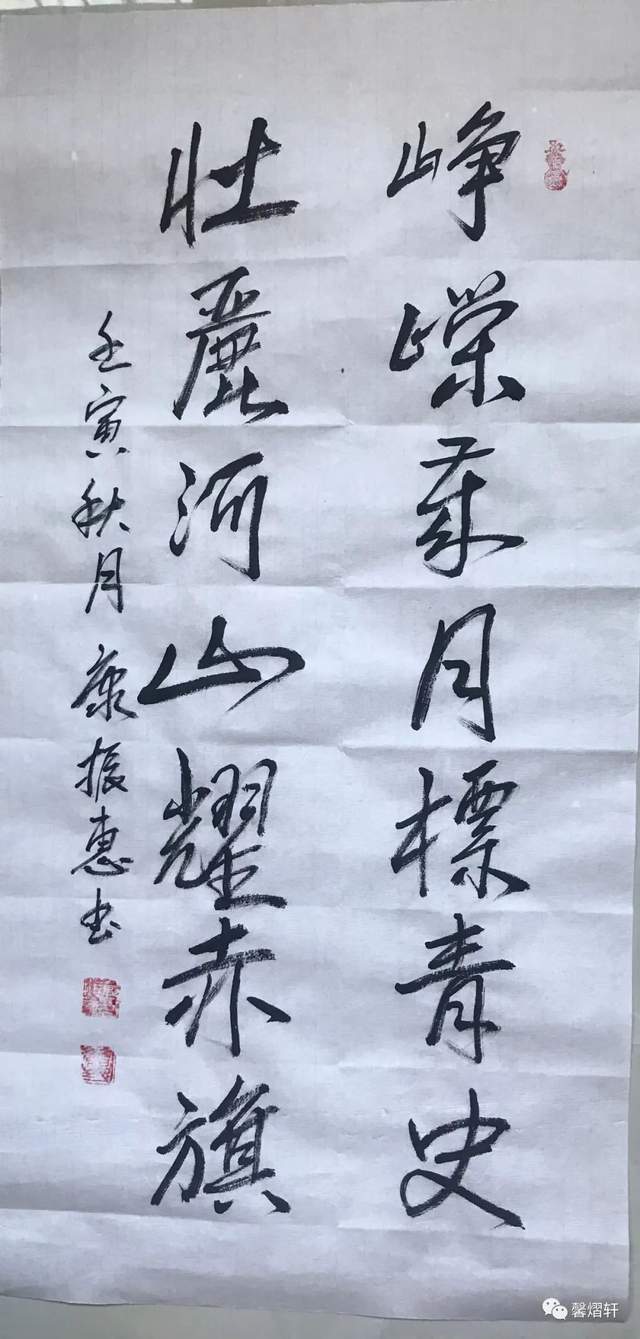 峥嵘岁月标青史
壮麗河山耀赤旗
壬寅秋月康振惠书
馨熠轩